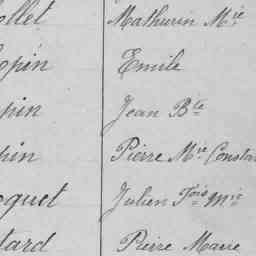 ollet Mathurin Mie
opin Emile
pin Jean Bte
pin Pierre Mie Constan
oquet Julien Fois Mie
tard Pierre Marie